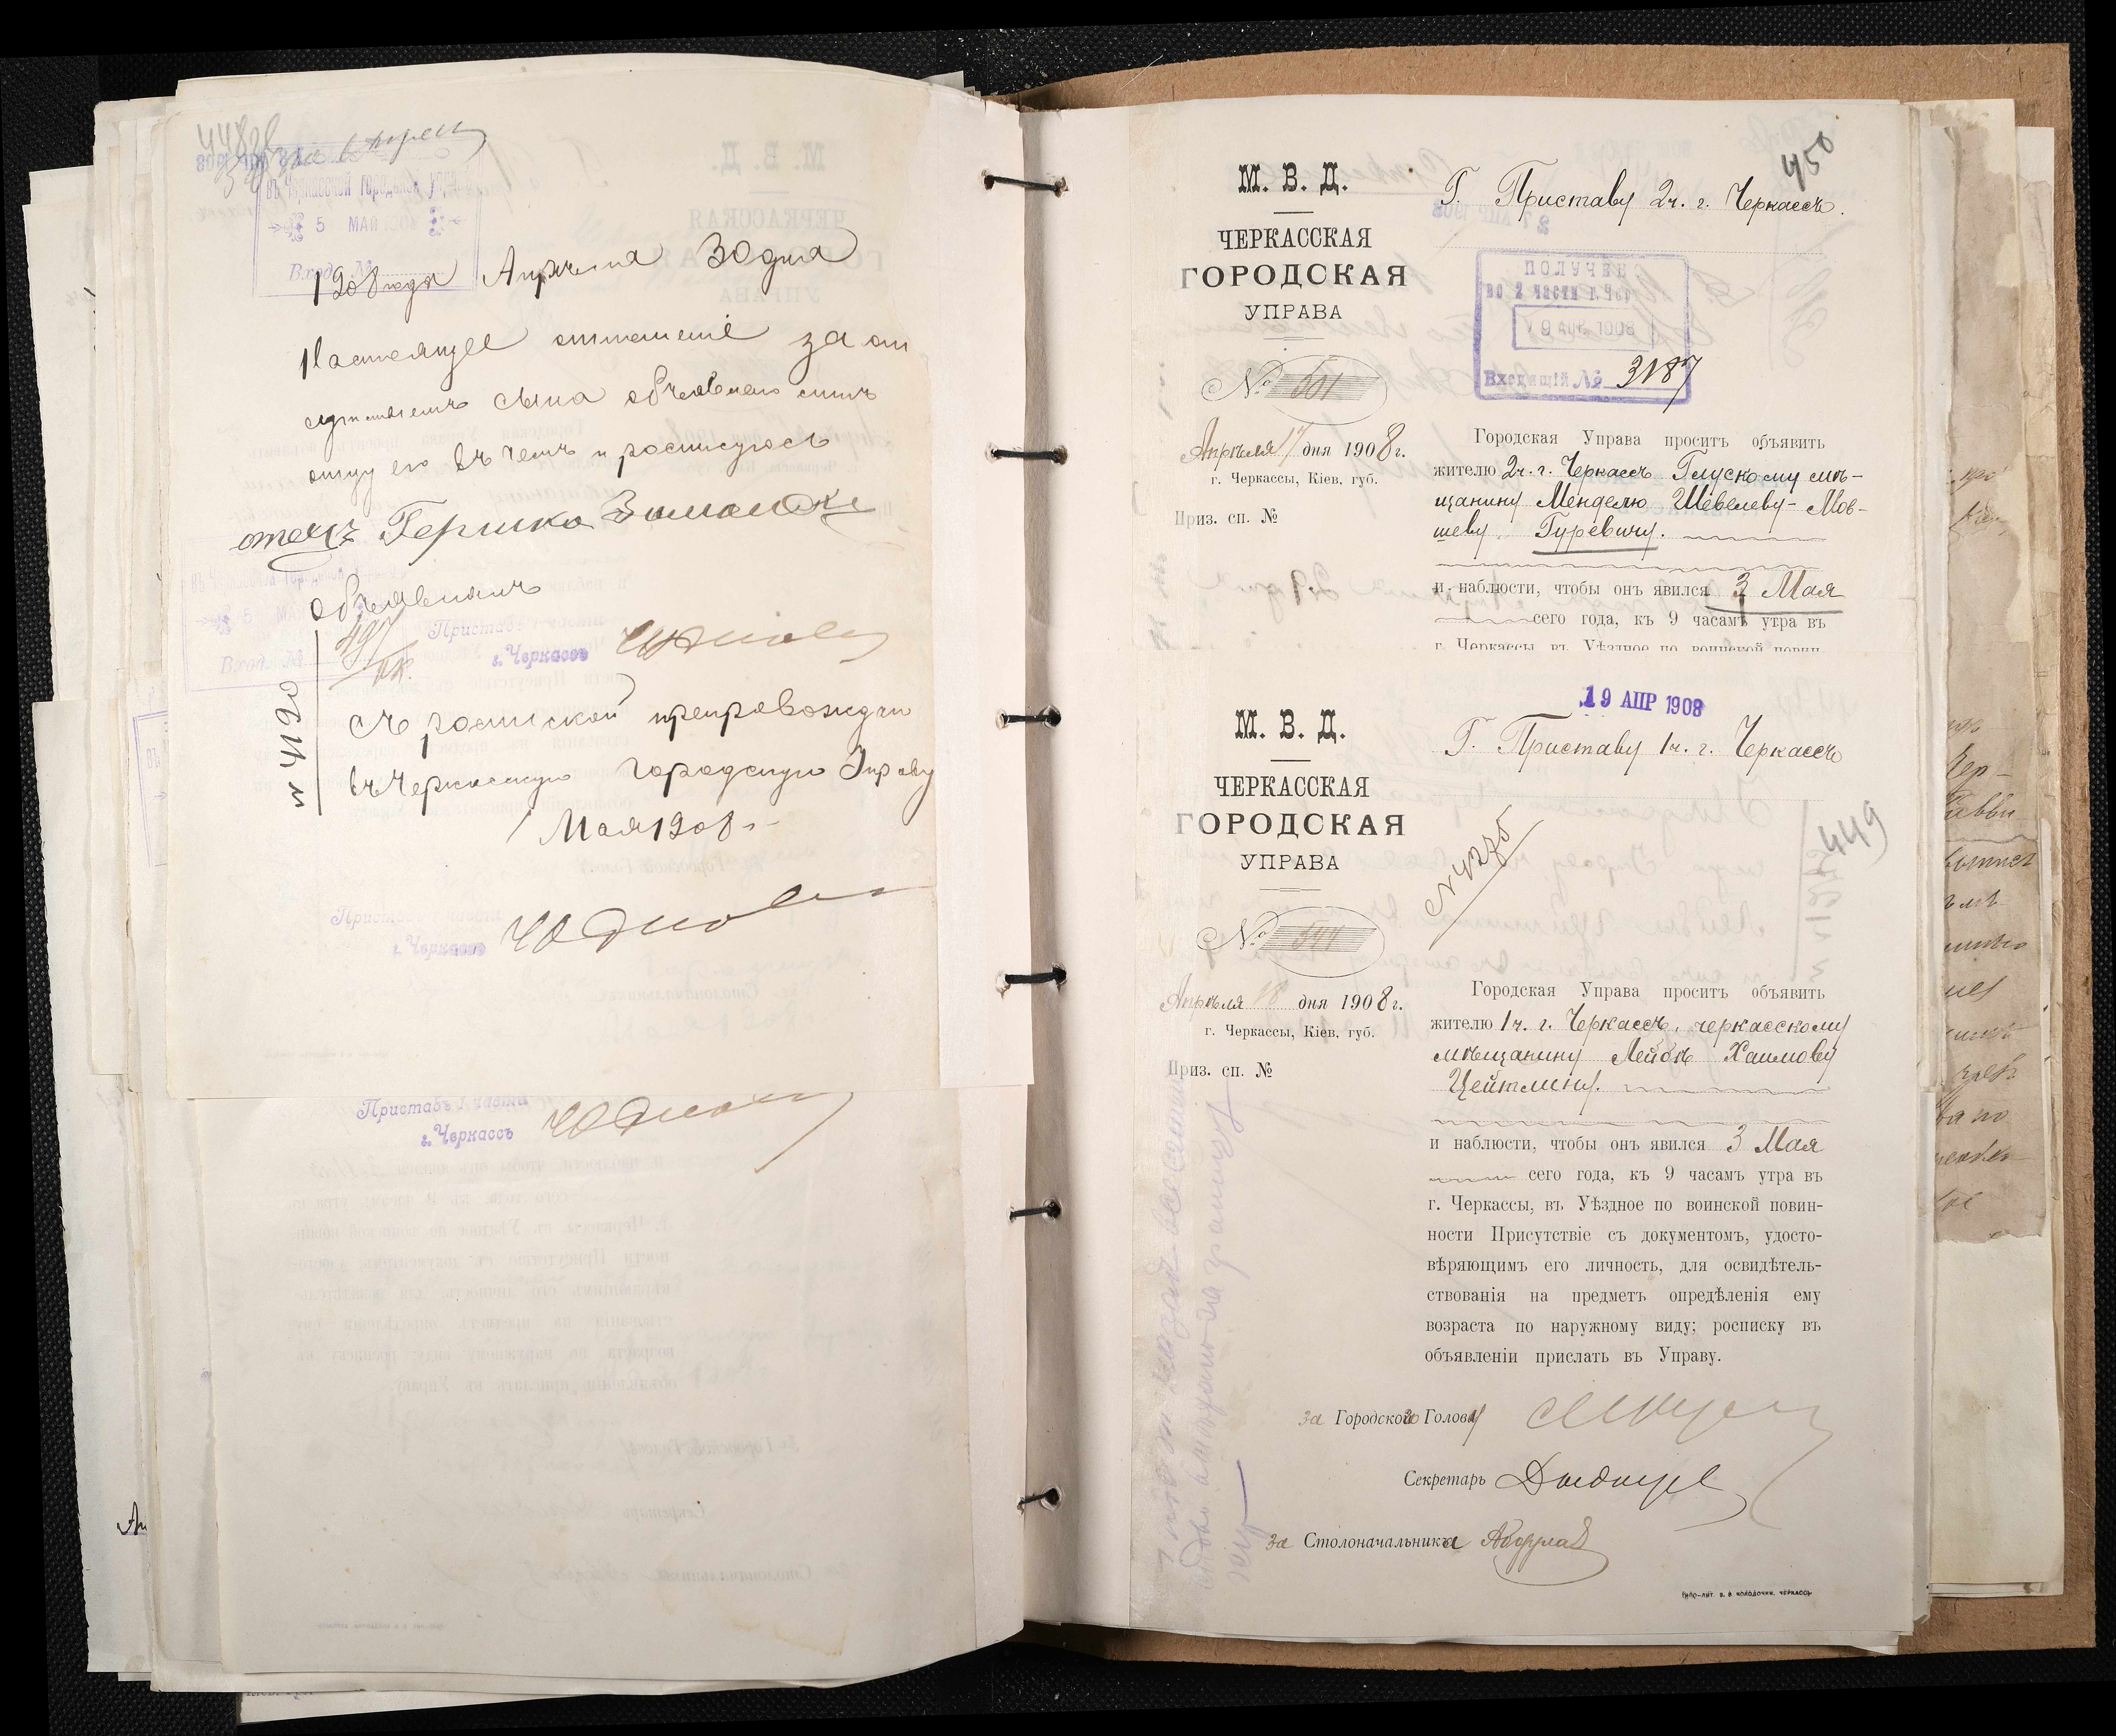 448об
въ Черкасской городской упра
5 МАЙ 1908
Вход. №
1908 года Апреля 30 дня
Настоящее отношение за от
сутствиемъ сына объявлено мнѣ
отцу его въ чемъ и росписуюсь
отецъ Гершко
объявилъ
497
Приставъ 1 части
г. Черкассъ
№ 4160
съ роспиской препровождаю
въ Черкасскую городскую Управу
Мая 1908 г.
Приставъ 1 части
г. Черкассъ
Приставъ 1 части
г. Черкассъ
450
М. В. Д.
ЧЕРКАССКАЯ
ГОРОДСКАЯ
УПРАВА
№ 501
Апрѣля 17 дня 1908 г.
г. Черкассы, Кіев. губ.
Приз. сп. №
Г. Приставу 2 ч. г. Черкассъ.
ПОЛУЧЕН
во 2 части г. Чер
19 АПР. 1908
Входящій № 3187
Городская Управа проситъ объявить
жителю 2 ч. г. Черкассъ Глускому мѣ-
щанину Менделю Шевелеву-Мов-
шеву Гуревичу.
и наблюсти, чтобы онъ явился 3 Мая
сего года, къ 9 часамъ утра въ
г. Черкассы, въ Уѣздное по воинской повин-
19 АПР 1908
М. В. Д.
ЧЕРКАССКАЯ
ГОРОДСКАЯ
УПРАВА
№
Апрѣля 18 дня 1908 г.
г. Черкассы, Кіев. губ.
Приз. сп. №
Г. Приставу 1 ч. г. Черкассъ
449
Городская Управа проситъ объявить
жителю 1 ч. г. Черкассъ, черкасскому
мѣщанину Лейбѣ Хаимову
Цейтлину.
и наблюсти, чтобы онъ явился 3 Мая
сего года, къ 9 часамъ утра въ
г. Черкассы, въ Уѣздное по воинской повин-
ности Присутствіе съ документомъ, удосто-
вѣряющимъ его личность, для освидѣтель-
ствованія на предметъ опредѣленія ему
возраста по наружному виду; росписку въ
объявленіи прислать въ Управу.
за Городского Голову
Секретарь
за Столоначальника